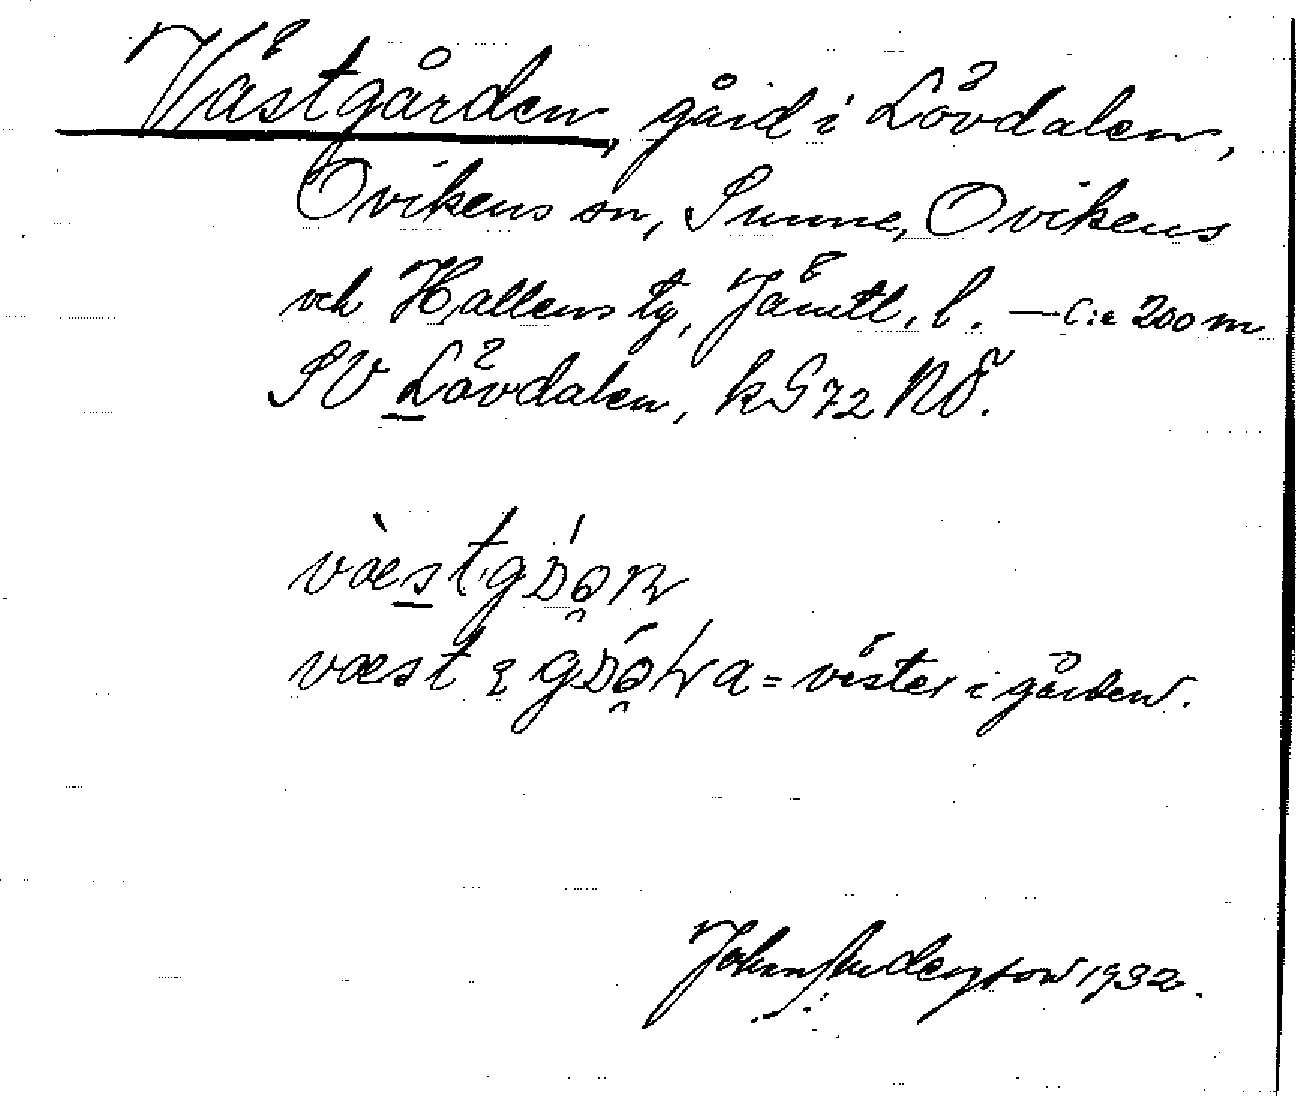 Västgården, gård i Lövdalen,
Ovikens sn, Sunne, Ovikens
och Hallens tg, Jämtl. l. — C:a 200 m
SV Lövdalen, kS72 NÖ.
væst
væst = väster i gården.
John Andersson 1932.